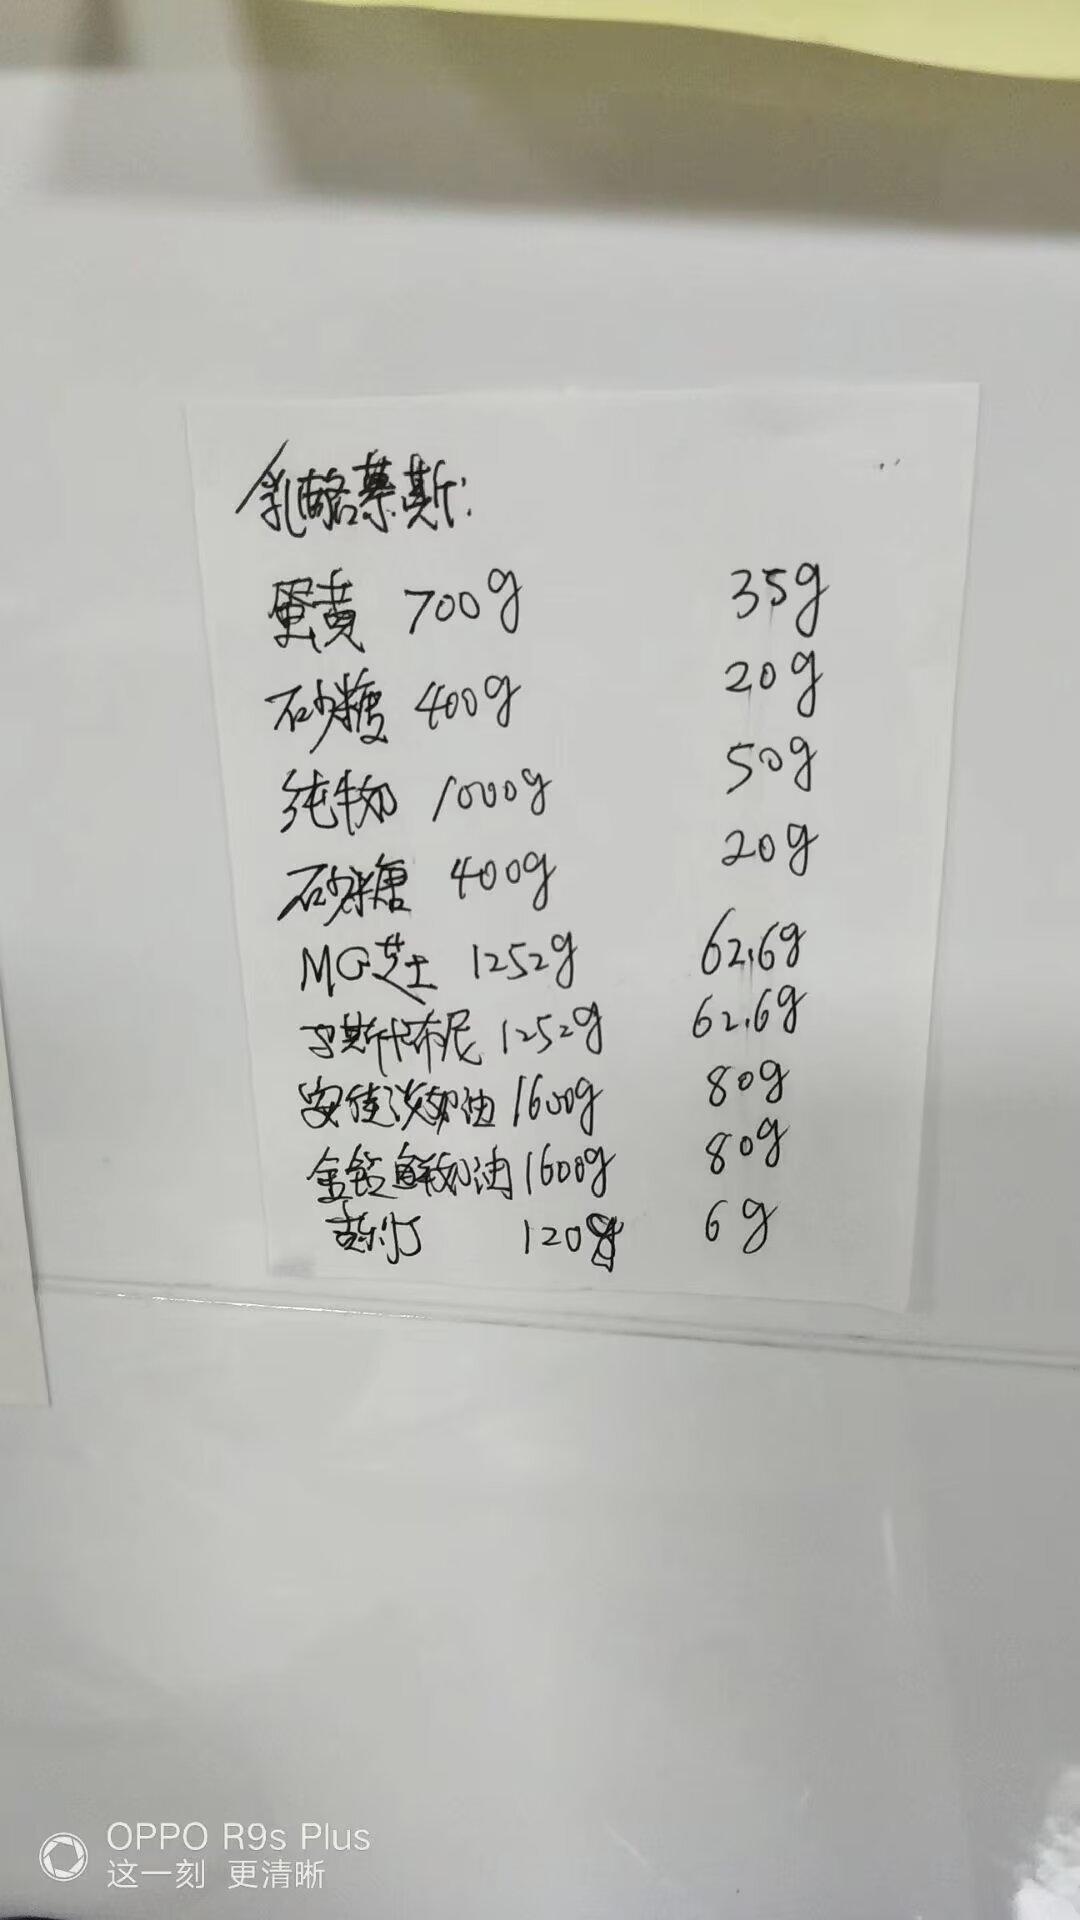 乳酪慕斯:
蛋黄 700g 35g
砂糖 400g 20g
纯牛奶 1000g 50g
砂糖 400g 20g
MG芝士 1252g 62.6g
马斯卡布尼 1252g 62.6g
安佳淡奶油 1600g 80g
金钻鲜奶油 1600g 80g
吉利丁 120g 6g
OPPO R9s Plus
这一刻 更清晰